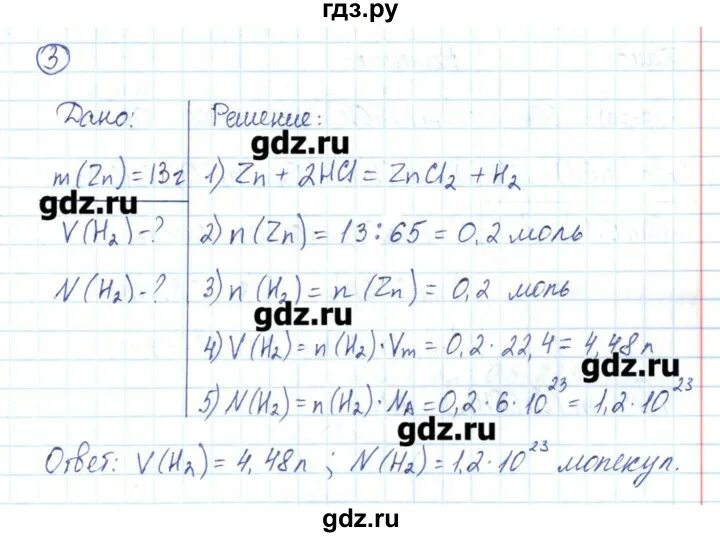 гдз.ру
3
Дано:
Решение:
gdz.ru
m(Zn)=13г
1) Zn + 2HCl = ZnCl₂ + H₂
gdz.ru
V(H₂)-?
2) n(Zn) = 13:65 = 0,2 моль
N(H₂)-?
3) n(H₂) = n(Zn) = 0,2 моль
gdz.ru
4) V(H₂) = n(H₂)·Vm = 0,2·22,4 = 4,48л
gdz.ru
5) N(H₂) = n(H₂)·NA = 0,2·6·10²³ = 1,2·10²³
gdz.ru
Ответ: V(H₂) = 4,48л ; N(H₂) = 1,2·10²³ молекул.
gdz.ru